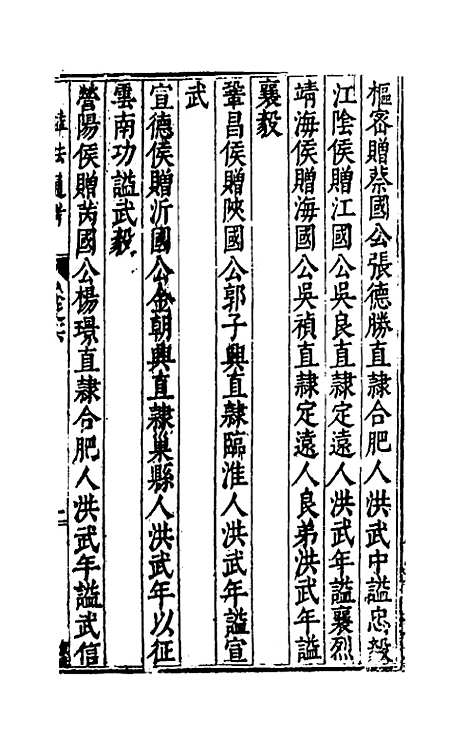 樞密贈蔡國公張德勝直隷合肥人洪武中謚忠毅
江陰侯贈江國公吳良直隷定遠人洪武年謚襄烈
靖海侯贈海國公吳禎直隷定遠人良弟洪武年謚
襄毅
鞏昌侯贈陝國公郭子興直隷臨淮人洪武年謚宣
武
宣德侯贈沂國公金朝興直隷巢縣人洪武年以征
雲南功謚武毅
營陽侯贈芮國公楊璟直隷合肥人洪武年謚武信
謚法通考